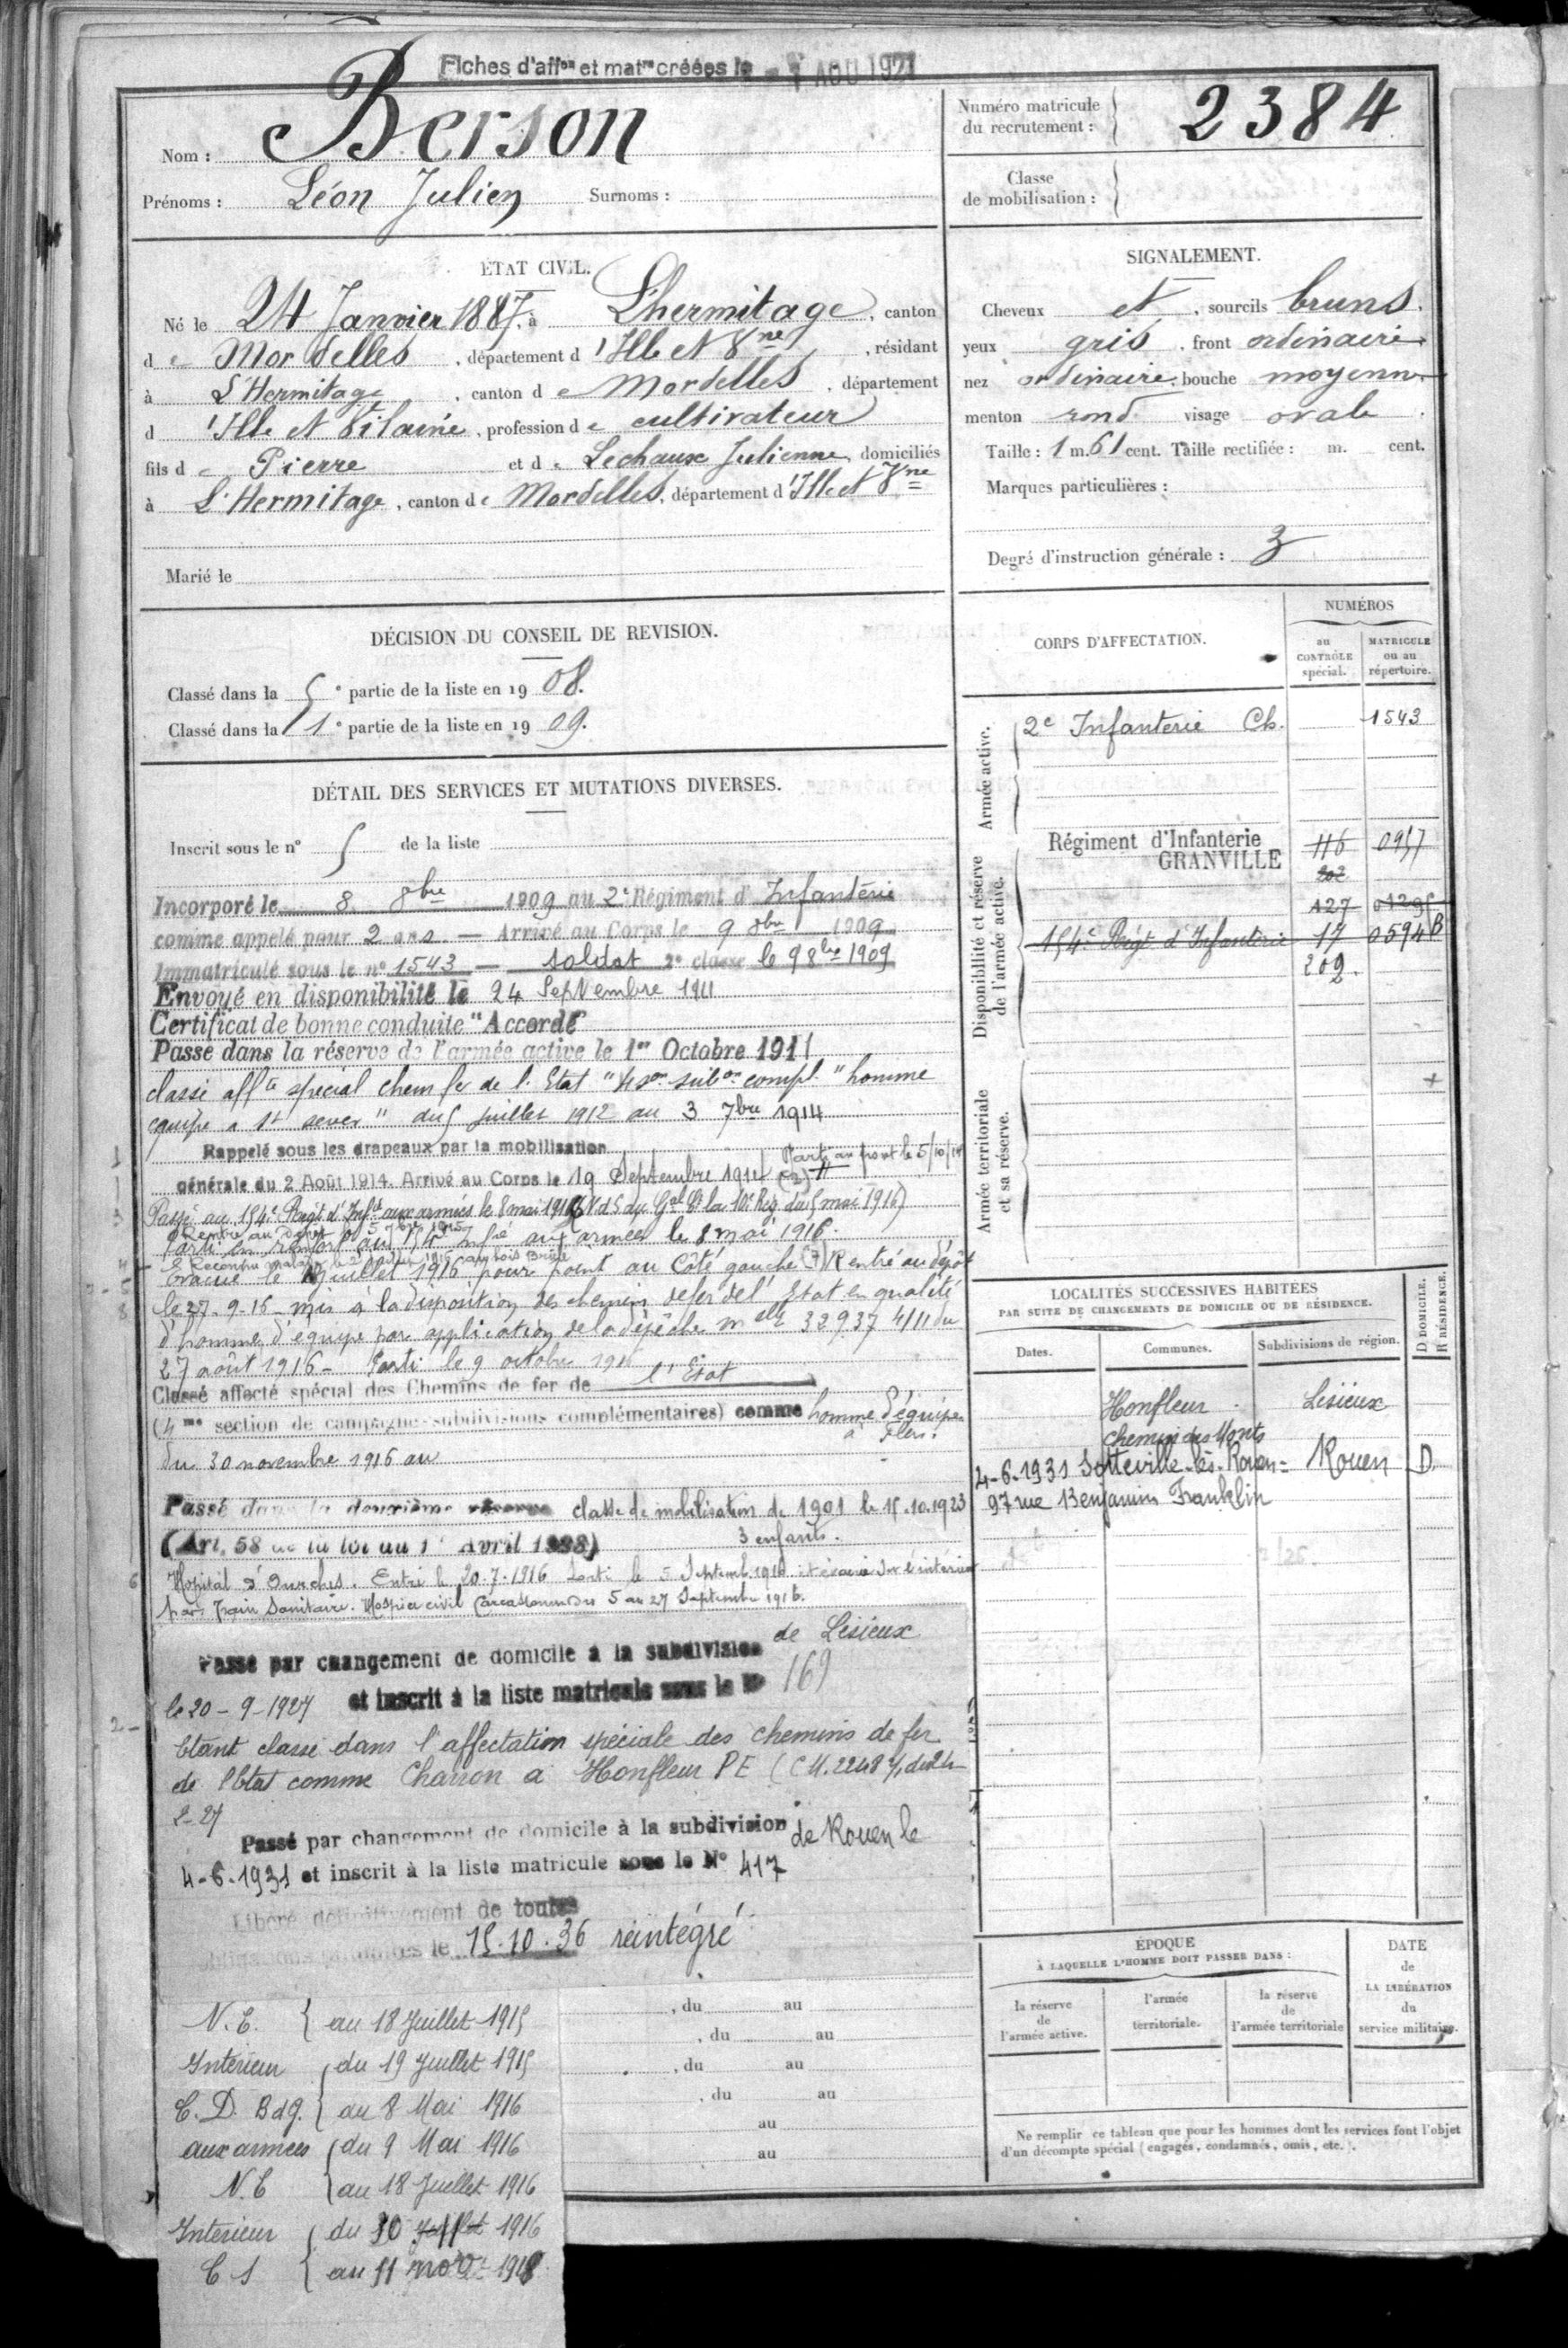 Fiches d'aff<sup>on</sup> et mat<sup>re</sup> créées le 1 AOU 1927
Nom : Berson
Prénoms : Léon Julien Surnoms :
Numéro matricule du recrutement : 2384
Classe de mobilisation :
ÉTAT CIVIL.
Né le 24 Janvier 1887, à L'hermitage, canton
de Mordelles, département d'Ille et Vne, résidant
à L'Hermitage, canton de Mordelles, département
d'Ille et Vilaine, profession de cultivateur
fils de Pierre et de Lechaux Julienne, domiciliés
à L'Hermitage, canton de Mordelles, département d'Ille et Vne
Marié le
SIGNALEMENT.
Cheveux et, sourcils bruns.
yeux gris, front ordinaire
nez ordinaire, bouche moyenne
menton rond visage ovale.
Taille : 1 m. 61 cent. Taille rectifiée : m. cent.
Marques particulières :
Degré d'instruction générale : 3
DÉCISION DU CONSEIL DE REVISION.
Classé dans la 5e partie de la liste en 1908.
Classé dans la 1e partie de la liste en 1909.
DÉTAIL DES SERVICES ET MUTATIONS DIVERSES.
Inscrit sous le n° 5 de la liste
Incorporé le 8 8bre 1909 au 2e Régiment d'Infanterie
comme appelé pour 2 ans. — Arrivé au Corps le 9 8bre 1909
Immatriculé sous le n° 1543 — soldat 2e classe le 9 8bre 1909
Envoyé en disponibilité le 24 Septembre 1911
Certificat de bonne conduite "Accordé"
Passé dans la réserve de l'armée active le 1er Octobre 1911
classé affté spécial chem fer de l'Etat "4 son subon compl." homme
équipe à St sever" du 5 juillet 1912 au 3 7bre 1914
Rappelé sous les drapeaux par la mobilisation
générale du 2 Août 1914. Arrivé au Corps le 19 Septembre 1914 (2) Parti au front le 5/10/14
Passé au 154e Régt d'Infie aux armées le 8 mai 1916 (N.d.S. du Gal Ct la 10e Rég. du 5 mai 1916)
Rentré au dépôt
Parti en renfort au 154e Infie aux armées le 8 mai 1916.
Evacué le juillet 1916 pour point au Côté gauche (7) Rentré au dépôt
le 27-9-16 - mis à la disposition des chemins de fer de l'Etat en qualité
d'homme d'équipe par application de la dépêche melle 32937 4/11 du
27 août 1916 - Parti le 9 octobre 1916
Classé affecté spécial des Chemins de fer de l'Etat
(4me section de campagne-subdivisions complémentaires) comme homme d'équipe
à Flers.
du 30 novembre 1916 au
Passé dans la deuxième réserve classe de mobilisation de 1901 le 15.10.1923
(Art. 58 de la loi du 1er avril 1923) 3 enfants.
Hôpital d'Ourches. Entré le 20.7.1916 sorti le 5 Septemb. 1916 et évacué sur l'intérieur
par Train Sanitaire. Hospice civil Carcassonne du 5 au 27 Septembre 1916.
Passé par changement de domicile à la subdivision de Lisieux
le 20-9-1927 et inscrit à la liste matricule sous le N° 169
Etant classé dans l'affectation spéciale des chemins de fer
de l'Etat comme Charron à Honfleur PE (C.M. 2248
2-27
Passé par changement de domicile à la subdivision de Rouen le
4-6-1931 et inscrit à la liste matricule sous le N° 417
Libéré définitivement de toutes
obligations militaires le 15.10.36 réintégré
N.E. { au 18 Juillet 1915
Intérieur { du 19 Juillet 1915
C.D. Bdg. { au 8 Mai 1916
aux armées { du 9 Mai 1916
N.E { au 18 Juillet 1916
Intérieur { du 30 Juillet 1916
C S { au 11 nov 1918
, du au
, du au
, du au
, du au
au
au
CORPS D'AFFECTATION.
NUMÉROS
au CONTRÔLE spécial.
MATRICULE ou au répertoire.
Armée active.
2e Infanterie Ch. 1543
Disponibilité et réserve de l'armée active.
Régiment d'Infanterie 116 0957
GRANVILLE
202
127
154e Régt d'Infanterie 17 0594B
209.
Armée territoriale et sa réserve.
LOCALITÉS SUCCESSIVES HABITÉES
PAR SUITE DE CHANGEMENTS DE DOMICILE OU DE RÉSIDENCE.
Dates. Communes. Subdivisions de région. D DOMICILE. R RÉSIDENCE.
Honfleur Lisieux
chemin des Monts
4-6-1931 Sotteville-lès-Rouen = Rouen D.
97 rue Benjamin Franklin
ÉPOQUE
À LAQUELLE L'HOMME DOIT PASSER DANS :
la réserve de l'armée active.
l'armée territoriale.
la réserve de l'armée territoriale
DATE de LA LIBÉRATION du service militaire.
Ne remplir ce tableau que pour les hommes dont les services font l'objet
d'un décompte spécial (engagés, condamnés, omis, etc.).